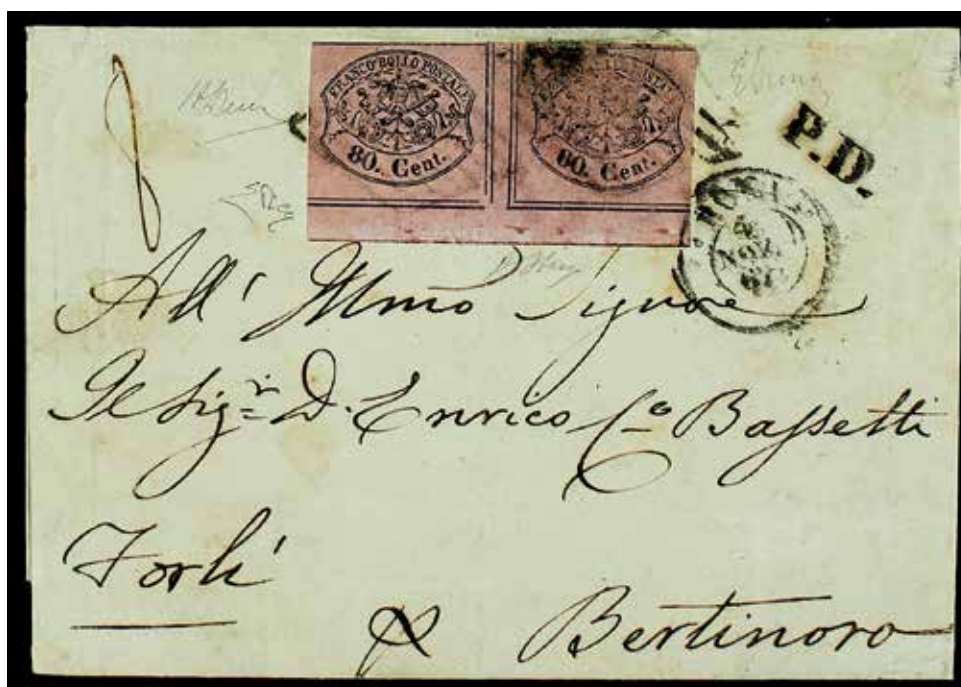 FRANCO BOLLO POSTALE
80. Cent.
80. Cent.
P.D.
ROMA
4
NOV
All' Illmo Signore
Il Sigr. D. Enrico Co Bassetti
Forlì
p Bertinoro